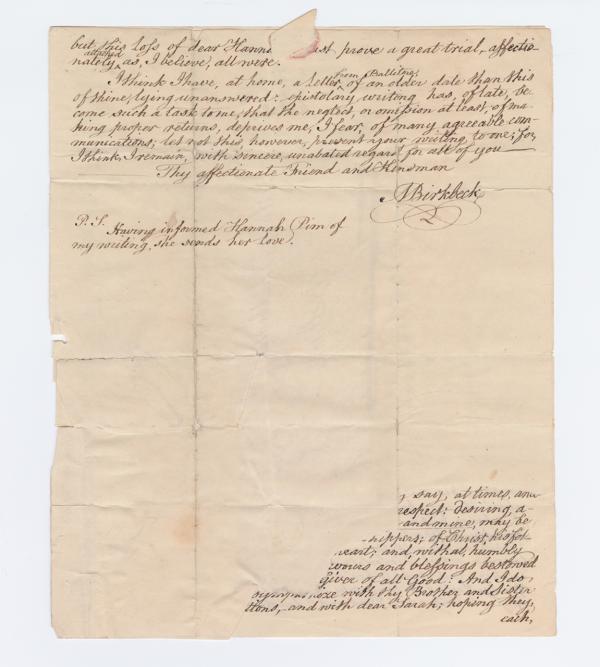 but this loss of dear Hanna must prove a great trial, affectio-
attached
nately, as, I believe, all were.
from Ballitore,
I think I have, at home, a letter, of an older date than this
of thine, lying unanswered: epistolary writing has, of late, be-
come such a task to me, that the neglect, or omission at least, of ma-
king proper returns, deprives me, I fear, of many agreeable com-
munications; let not this, however, prevent your writing to me; for,
I think, I remain, with sincere, unabated regard for all of you
Thy affectionate Friend and Kinsman
Birkbeck
P. S. Having informed Hannah Pim of
my writing, she sends her love.
say, at times, and
respect: desiring, a-
and mine, may be
shippers; of Christ, his fol-
heart; and, withal, humbly
vours and blessings bestowed
giver of all Good: And I do
with thy Brother and Sister
tions, and with dear Sarah; hoping they,
each,